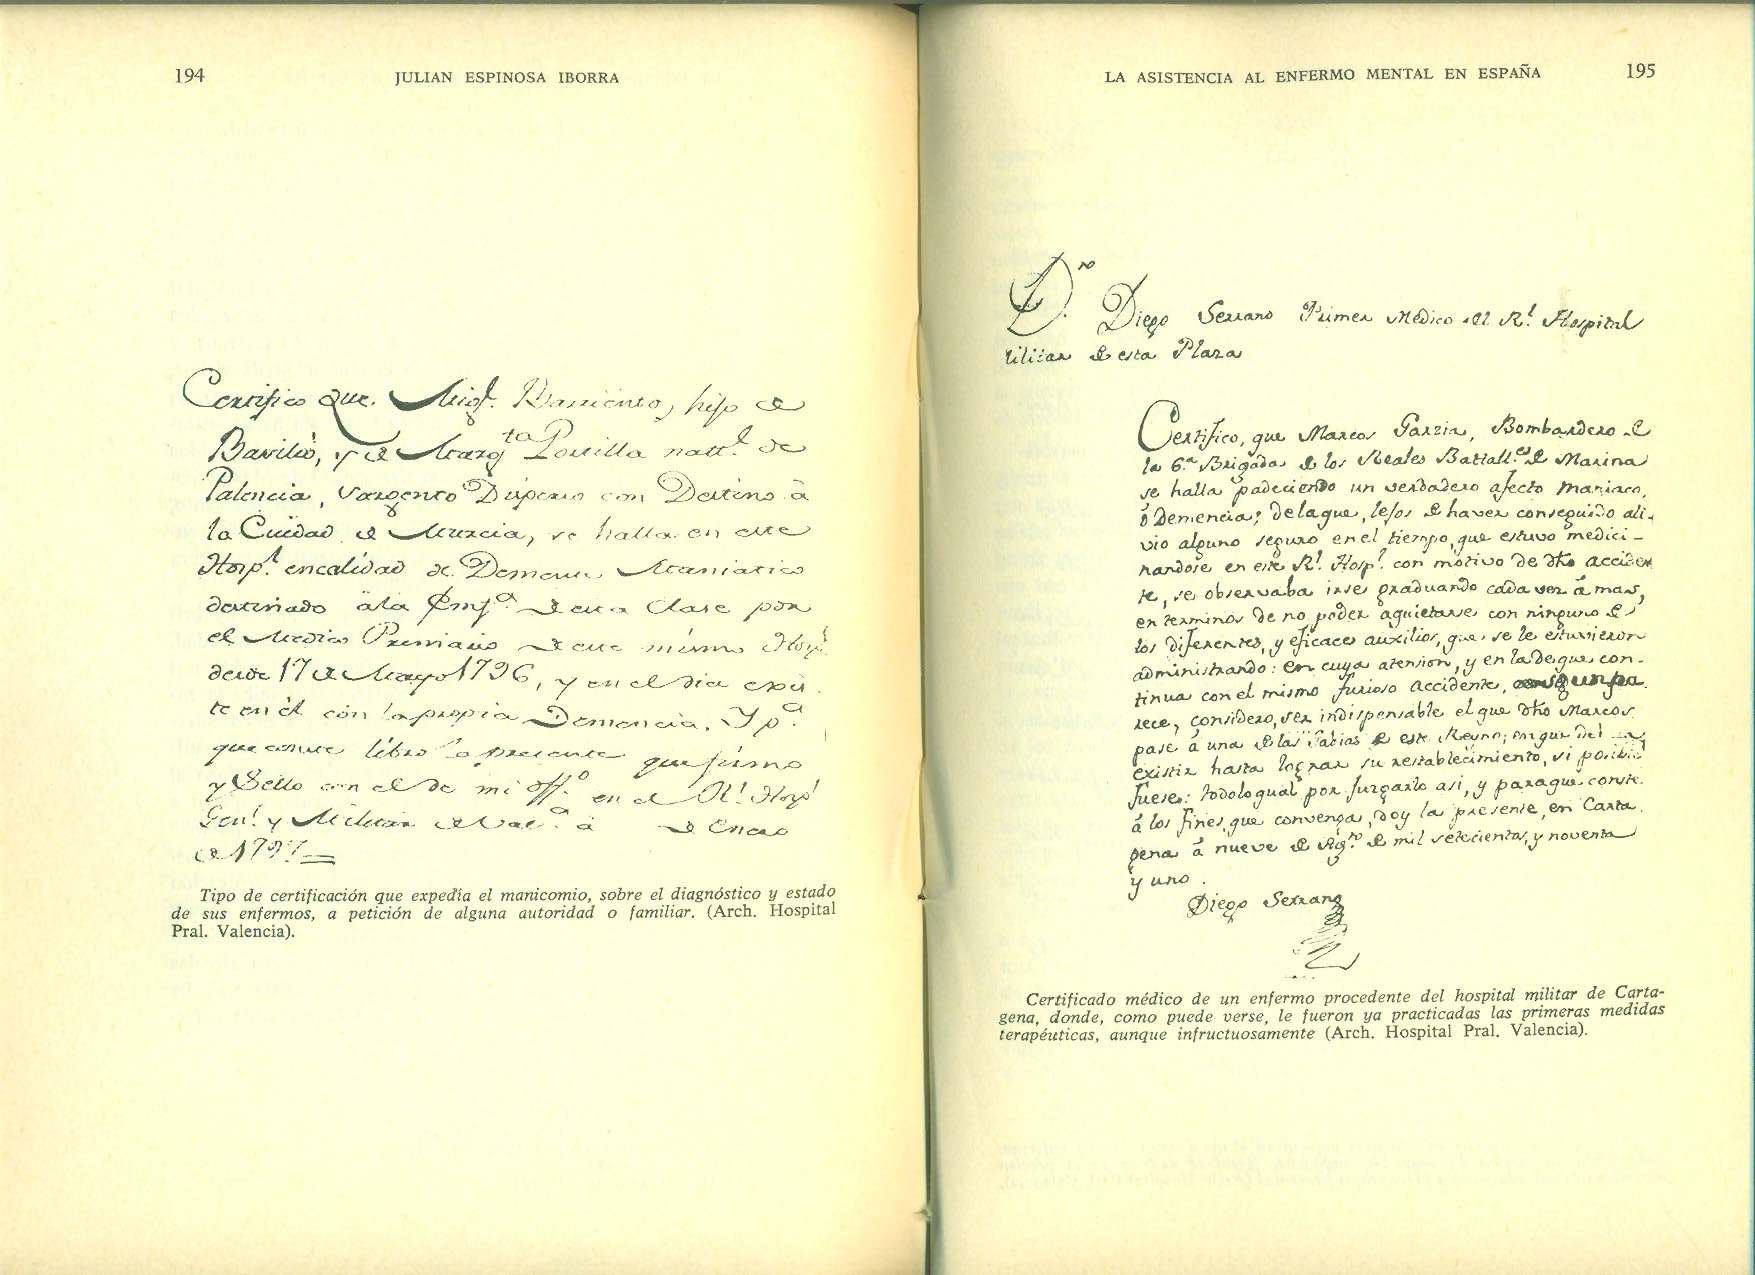 194
JULIAN ESPINOSA IBORRA
Certifico que. Migl. Barriento, hijo de
Basilio, y de Margta Portilla natl. de
Palencia, Sargento Disperso con Destino à
la Ciudad de Murcia, se halla en este
Hospl. en calidad de Demente Maniatico
destinado à la de esta Clase por
el Medico Primario de este mismo Hospl.
desde 17 de Mayo 1796, y en el dia exis
te en él con la propia Demencia. Y pa.
que conste libro la presente que firmo
y Sello con el de mi offo. en el Rl. Hospl
Genl. y Militar de Vala. à de Enero
de 1797
Tipo de certificación que expedía el manicomio, sobre el diagnóstico y estado
de sus enfermos, a petición de alguna autoridad o familiar. (Arch. Hospital
Pral. Valencia).
LA ASISTENCIA AL ENFERMO MENTAL EN ESPAÑA
195
Dn. Diego Serrano Primer Medico del Rl. Hospital
Militar de esta Plaza
Certifico, que Marcos Garzia, Bombardero de
la 6.a Brigada de los Reales Batalls. de Marina
se halla padeciendo un verdadero afecto maniaco,
ó Demencia; de la que, lejos de haver conseguido ali-
vio alguno seguro en el tiempo, que estuvo medici-
nandose en este Rl. Hospl. con motivo de dho acciden
te, se observaba irse graduando cada vez á mas,
en terminos de no poder aquietarse con ninguno de
los diferentes, y eficaces auxilios, que se le estuvieron
administrando: en cuya atension, y en la de que con-
tinua con el mismo furioso accidente, segun pa-
rece, considero, ser indispensable el que dho Marcos
pase á una de las Casas de este Reyno; en que
existir hasta lograr su restablecimiento, si posible
fuese: todo lo qual por juzgarlo asi, y para que conste
á los fines, que convenga, doy la presente, en Carta-
gena á nueve de Agto. de mil setecientos, y noventa
y uno.
Diego Serrano
Certificado médico de un enfermo procedente del hospital militar de Carta-
gena, donde, como puede verse, le fueron ya practicadas las primeras medidas
terapéuticas, aunque infructuosamente (Arch. Hospital Pral. Valencia).